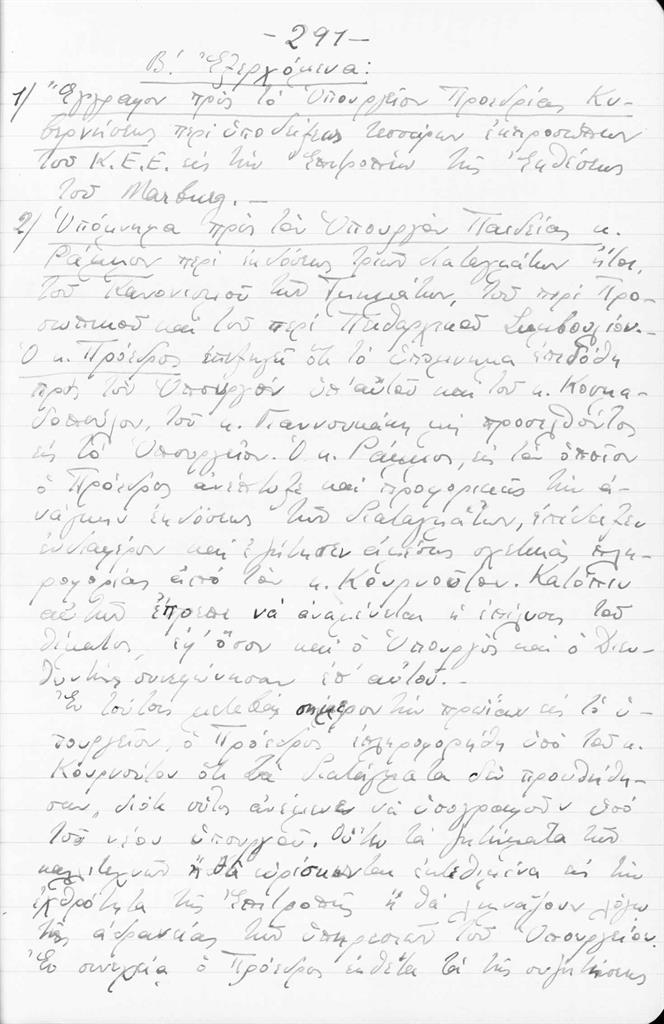 - 291 -
Β΄. Ἐξερχόμενα:
1/ Ἔγγραφον πρὸς τὸ Ὑπουργεῖον Προεδρίας Κυ-
βερνήσεως περὶ ὑποδείξεως τεσσάρων ἐκπροσώπων
τοῦ Κ.Ε.Ε. εἰς τὴν Ἐπιτροπὴν τῆς Ἐκθέσεως
τοῦ Marburg. —
2/ Ὑπόμνημα πρὸς τὸν Ὑπουργὸν Παιδείας κ.
Ράμμον περὶ ἐκδόσεως τριῶν διαταγμάτων ἤτοι,
τοῦ Κανονισμοῦ τῶν Τμημάτων, τοῦ περὶ Προ-
σωπικοῦ καὶ τοῦ περὶ Πειθαρχικοῦ Συμβουλίου.—
Ὁ κ. Πρόεδρος ἐπεξηγεῖ ὅτι τὸ ὑπόμνημα ἐπεδόθη
πρὸς τὸν Ὑπουργὸν ὑπ' αὐτοῦ καὶ τοῦ κ. Κουμα-
δοπούλου, τοῦ κ. Γιαννουκάκη μὴ προσελθόντος
εἰς τὸ Ὑπουργεῖον. Ὁ κ. Ράμμος, εἰς τὸν ὁποῖον
ὁ Πρόεδρος ἀνέπτυξε καὶ προφορικῶς τὴν ἀ-
νάγκην ἐκδόσεως τῶν διαταγμάτων, ἐπέδειξεν
ἐνδιαφέρον καὶ ἐζήτησεν ἀμέσως σχετικὰς πλη-
ροφορίας ἀπὸ τὸν κ. Κουρνοῦτον. Κατόπιν
αὐτῶν ἔπρεπε νὰ ἀναμένεται ἡ ἐπίλυσις τοῦ
θέματος, ἐφ' ὅσον καὶ ὁ Ὑπουργὸς καὶ ὁ Διευ-
θυντὴς συνεφώνησαν ἐπ' αὐτοῦ. —
Ἐν τούτοις μεταβὰς σήμερον τὴν πρωίαν εἰς τὸ ὑ-
πουργεῖον, ὁ Πρόεδρος ἐπληροφορήθη ὑπὸ τοῦ κ.
Κουρνούτου ὅτι τὰ διατάγματα δὲν προωθήθη-
σαν, διότι οὗτος ἀνέμενε νὰ ὑπογραφοῦν ὑπὸ
τοῦ νέου ὑπουργοῦ. Οὕτω τὰ ζητήματα τῶν
καλλιτεχνῶν ἢ θὰ εὑρίσκωνται ἐκτεθειμένα εἰς τὴν
ἐχθρότητα τῆς Ἐπιτροπῆς ἢ θὰ λιμνάζουν λόγῳ
τῆς ἀδρανείας τῶν ὑπηρεσιῶν τοῦ Ὑπουργείου.
Ἐν συνεχείᾳ ὁ Πρόεδρος ἐκθέτει τὰ τῆς συζητήσεως